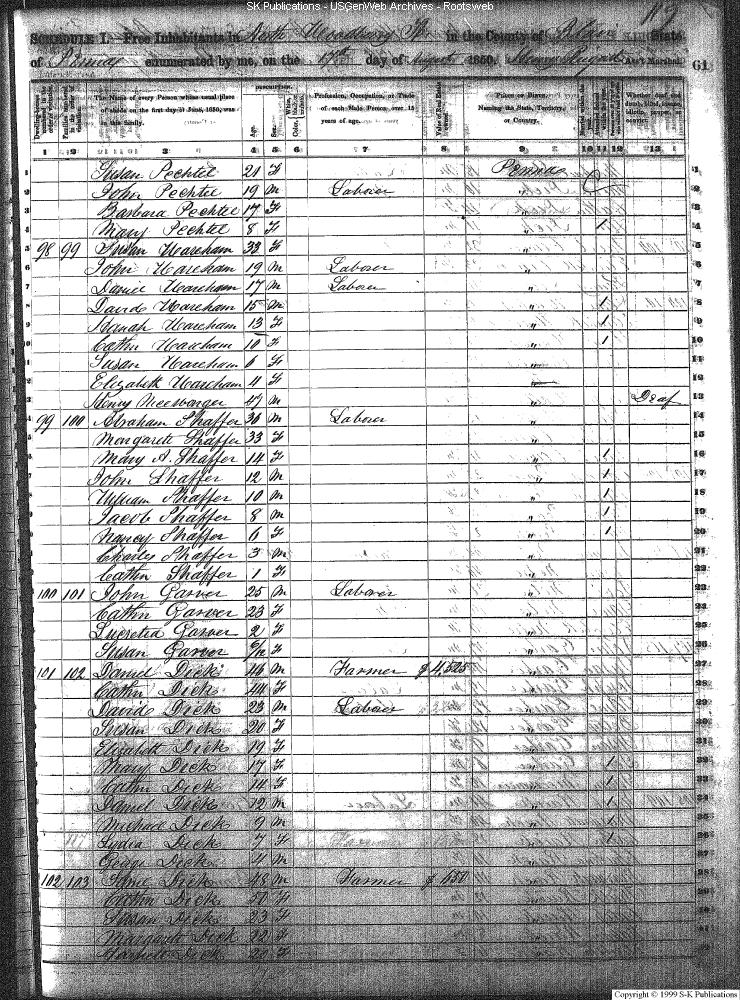 SK Publications - USGenWeb Archives - Rootsweb
SCHEDULE I.—Free Inhabitants in North Woodbury Tp in the County of Blair State
of Penna enumerated by me, on the 17th day of August 1850. Ass't Marshal. 61
DESCRIPTION.
The Name of every Person whose usual place of abode on the first day of June, 1850, was in this family. Age. Sex. Profession, Occupation, or Trade of each Male Person, over 15 years of age. Value of Real Estate owned. PLACE OF BIRTH. Naming the State, Territory, or Country.
1 2 3 4 5 6 7 8 9 10 11 12 13
1 Susan Pechtel 21 F Penna 1
2 John Pechtel 19 M Laborer " 2
3 Barbara Pechtel 17 F " 3
4 Mary Pechtel 8 F " 1 4
5 98 99 Susan Wareham 33 F " 5
6 John Wareham 19 M Laborer " 6
7 Daniel Wareham 17 M Laborer " 7
8 David Wareham 15 M " 1 8
9 Hanah Wareham 13 F " 1 9
10 Cathn Wareham 10 F " 1 10
11 Susan Wareham 6 F " 11
12 Elizabeth Wareham 4 F " 12
13 Henry 47 M " Deaf 13
14 99 100 Abraham Shaffer 36 M Laborer " 14
15 Margarete Shaffer 33 F " 15
16 Mary A. Shaffer 14 F " 1 16
17 John Shaffer 12 M " 1 17
18 William Shaffer 10 M " 1 18
19 Jacob Shaffer 8 M " 1 19
20 Nancy Shaffer 6 F " 1 20
21 Charles Shaffer 3 M " 21
22 Cathn Shaffer 1 F " 22
23 100 101 John Garver 25 M Laborer " 23
24 Cathn Garver 23 F " 24
25 Lucretia Garver 2 F " 25
26 Susan Garver F " 26
27 101 102 Daniel Dick 46 M Farmer $4,525 " 27
28 Cathn Dick 44 F " 28
29 David Dick 23 M Laborer " 29
30 Susan Dick 20 F " 30
31 Elizabeth Dick 19 F " 31
32 Mary Dick 17 F " 1 32
33 Cathn Dick 14 F " 1 33
34 Daniel Dick 12 M " 1 34
35 Michael Dick 9 M " 1 35
36 Lydia Dick 7 F " 1 36
37 George Dick 4 M " 37
38 102 103 Dick 48 M Farmer $ 550 " 38
39 Cathn Dick 50 F " 39
40 Susan Dick 23 F " 40
41 Margarete Dick 22 F " 41
42 Dick 20 F " 42
Copyright © 1999 S-K Publications